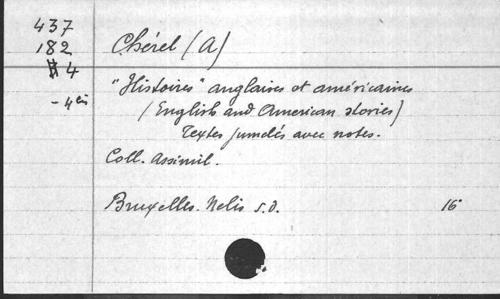 437
182
4
- 4 bis
Chérel (A)
"Histoires" anglaises et américaines
(English and American stories)
Textes jumelés avec notes.
Coll. Assimil.
Bruxelles. Nelis s.d. 16°